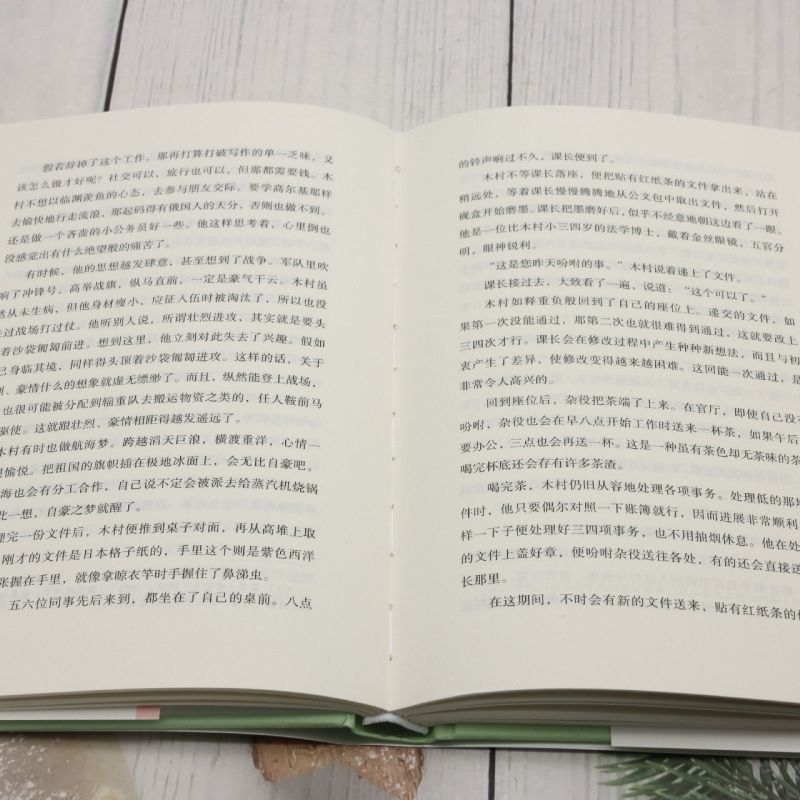 假若辞掉了这个工作，那再打算打破写作的单一乏味，又
该怎么做才好呢？社交可以，旅行也可以，但那都需要钱。木
村不想以临渊羡鱼的心态，去参与朋友交际。要学高尔基那样
去愉快地行走流浪，那起码得有俄国人的天分，否则也做不到。
还是做一个吝啬的小公务员好一些。他这样思考着，心里倒也
没感觉出有什么绝望般的痛苦了。
有时候，他的思想越发肆意，甚至想到了战争。军队里吹
响了冲锋号，高举战旗，纵马直前，一定是豪气干云。木村虽
然从未生病，但他身材瘦小，应征入伍时被淘汰了，所以也没
上过战场打过仗。他听别人说，所谓壮烈进攻，其实就是要头
着沙袋匍匐前进。想到这里，他立刻对此失去了兴趣。假如
己身临其境，同样得头顶着沙袋匍匐进攻。这样的话，关于
、豪情什么的想象就虚无缥缈了。而且，纵然能登上战场，
也很可能被分配到辎重队去搬运物资之类的，任人鞍前马
驱使。这就跟壮烈、豪情相距得越发遥远了。
木村有时也做航海梦。跨越滔天巨浪，横渡重洋，心情一
愉悦。把祖国的旗帜插在极地冰面上，会无比自豪吧。
海也会有分工合作，自己说不定会被派去给蒸汽机烧锅
此一想，自豪之梦就醒了。
理完一份文件后，木村便推到桌子对面，再从高堆上取
刚才的文件是日本格子纸的，手里这个则是紫色西洋
张握在手里，就像拿晾衣竿时手握住了鼻涕虫。
五六位同事先后来到，都坐在了自己的桌前。八点
的铃声响过不久，课长便到了。
木村不等课长落座，便把贴有红纸条的文件拿出来，站在
稍远处，等着课长慢慢腾腾地从公文包中取出文件，然后打开
砚盒开始磨墨。课长把墨磨好后，似乎不经意地朝这边看了一眼。
他是一位比木村小三四岁的法学博士，戴着金丝眼镜，五官分
明，眼神锐利。
“这是您昨天吩咐的事。”木村说着递上了文件。
课长接过去，大致看了一遍，说道：“这个可以了。”
木村如释重负般回到了自己的座位上。递交的文件，如
果第一次没能通过，那第二次也就很难得到通过，这就要改上
三四次才行。课长会在修改过程中产生种种新想法，而且与初
衷产生了差异，使修改变得越来越困难。这回能一次通过，是
非常令人高兴的。
回到座位后，杂役把茶端了上来。在官厅，即使自己没
吩咐，杂役也会在早八点开始工作时送来一杯茶，如果午后
要办公，三点也会再送一杯。这是一种虽有茶色却无茶味的茶
喝完杯底还会存有许多茶渣。
喝完茶，木村仍旧从容地处理各项事务。处理低的那堆
件时，他只要偶尔对照一下账簿就行，因而进展非常顺利
样一下子便处理好三四项事务，也不用抽烟休息。他在处
的文件上盖好章，便吩咐杂役送往各处，有的还会直接送
长那里。
在这期间，不时会有新的文件送来，贴有红纸条的